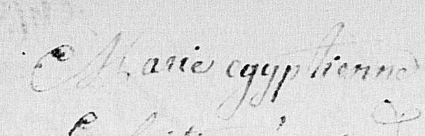 Marie egyptienne